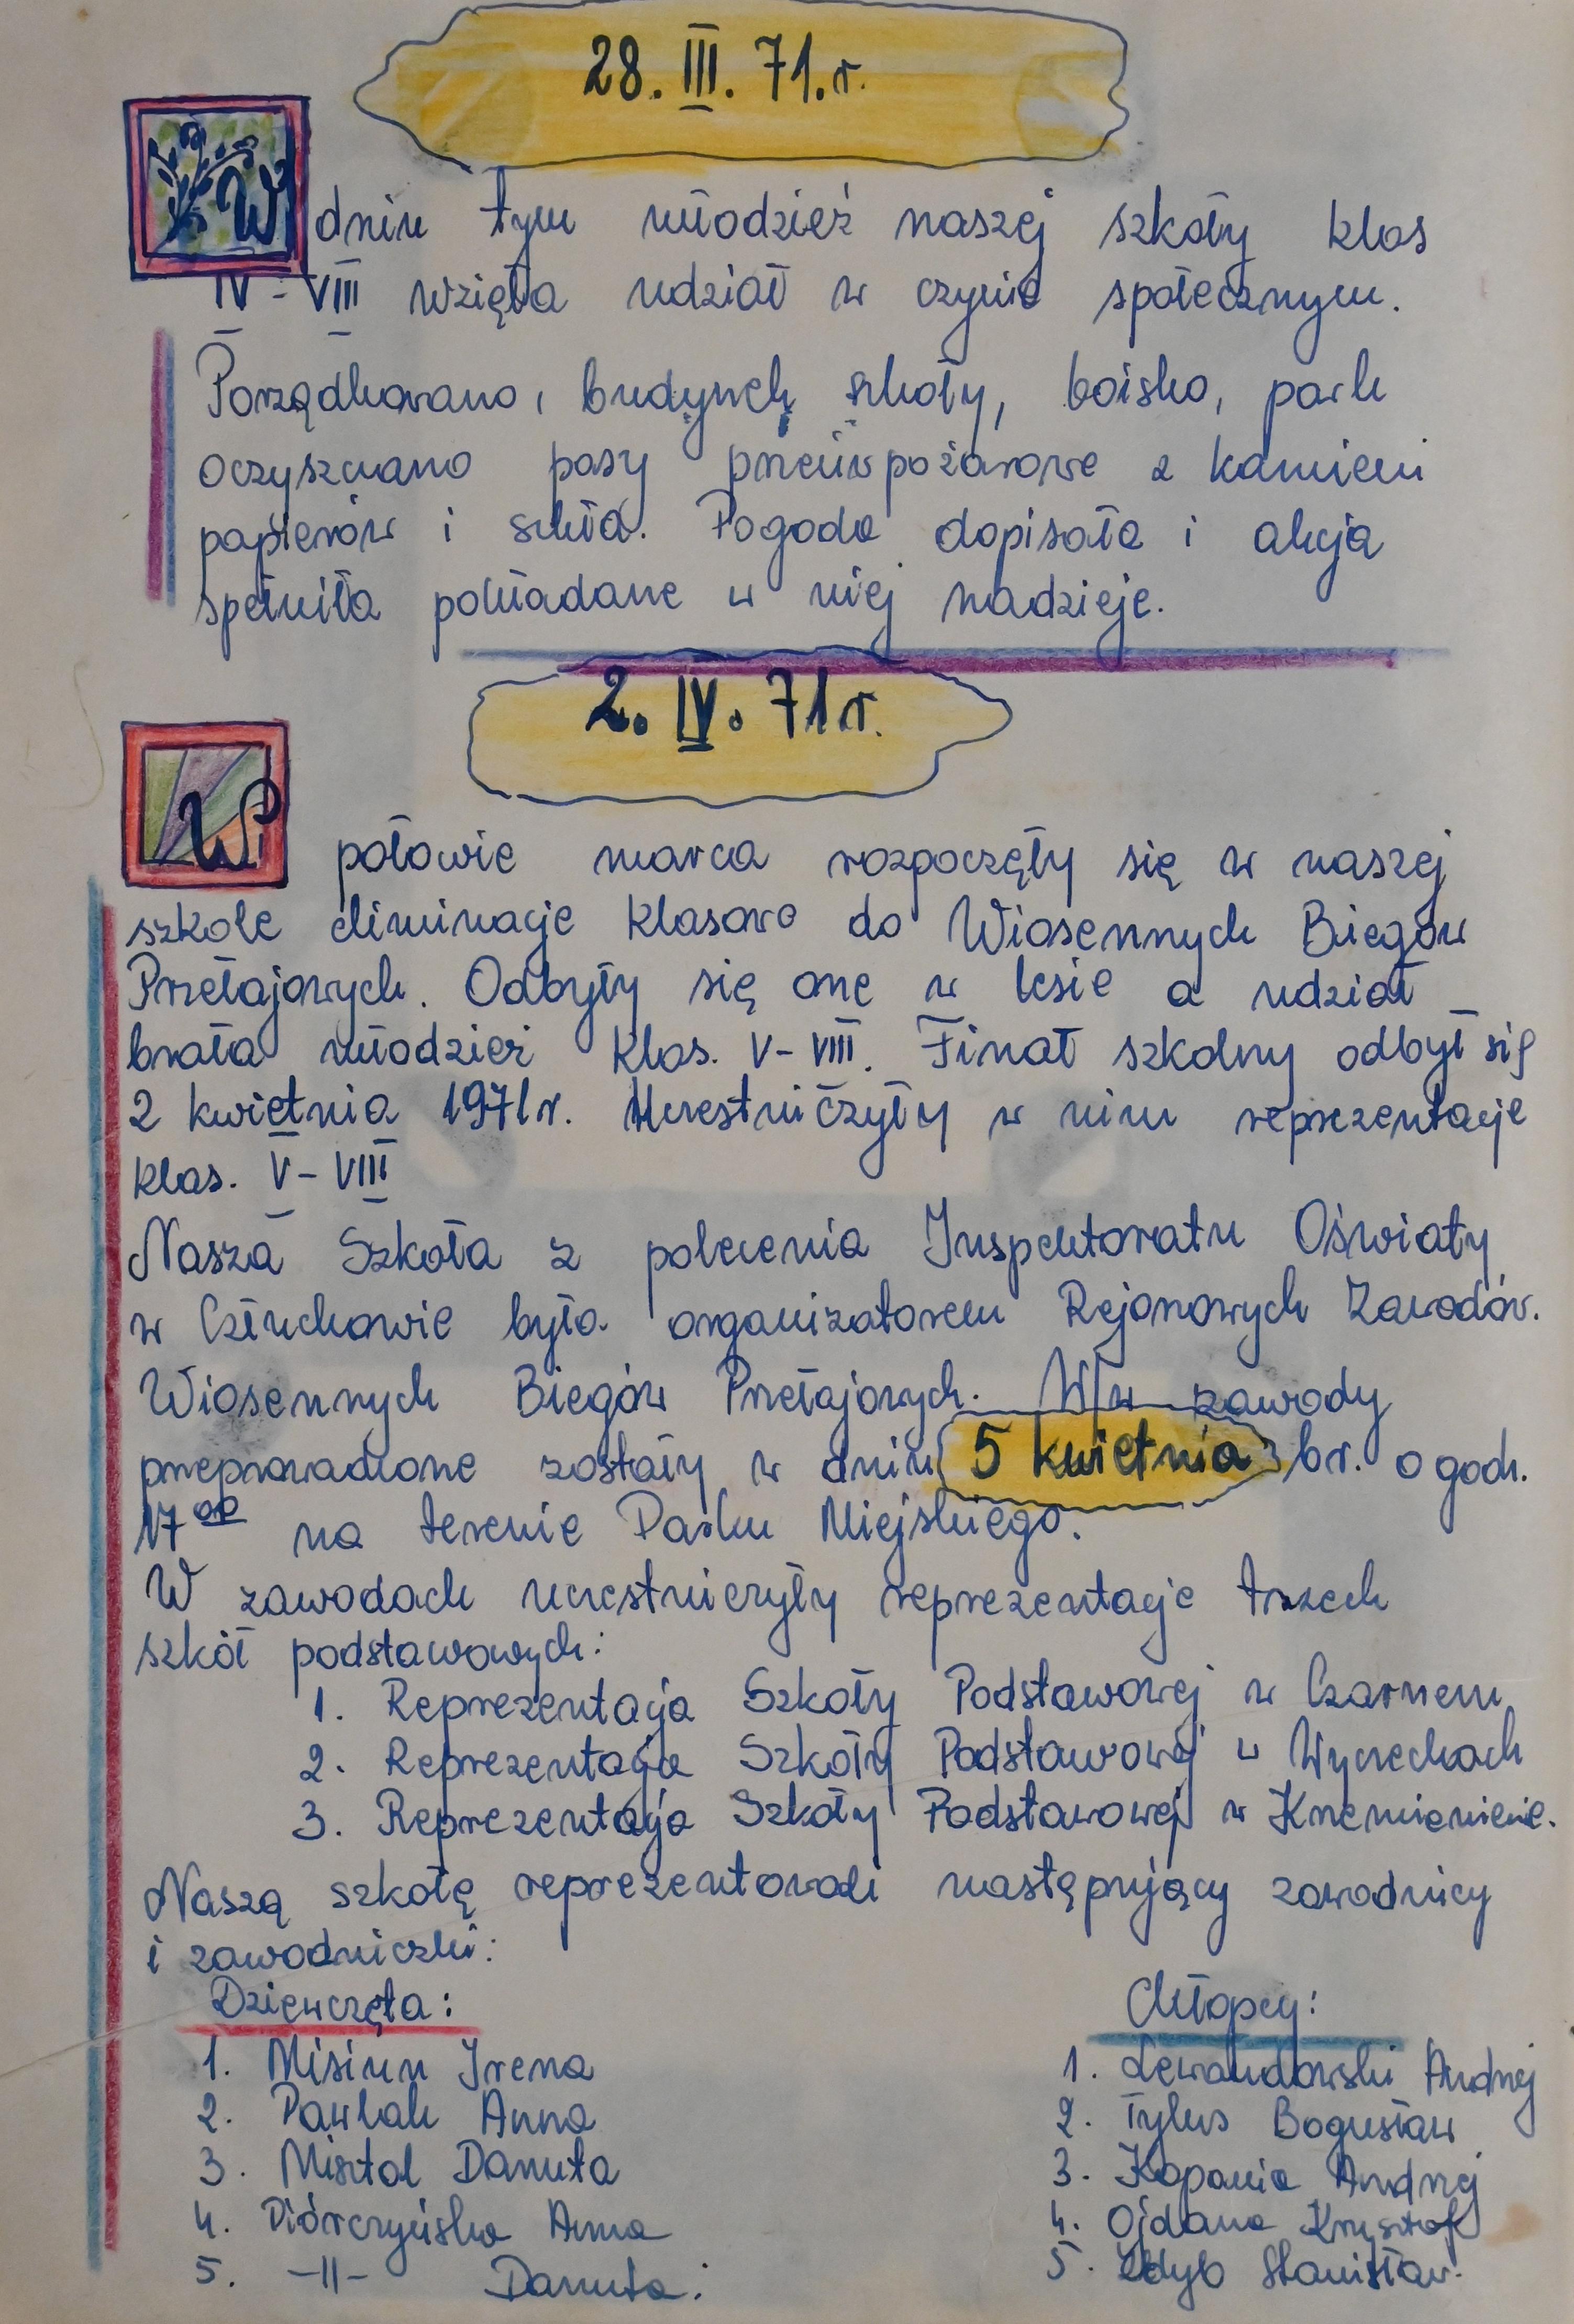 28. III. 71.r.
W dniu tym młodzież naszej szkoły klas
IV - VIII wzięła udział w czynie społecznym.
Porządkowano, budynek szkoły, boisko, park
oczyszczano pasy przeciwpożarowe z kamieni
papierów i szkła. Pogoda dopisała i akcja
spełniła pokładane w niej nadzieje.
2. IV. 71 r.
W połowie marca rozpoczęły się w naszej
szkole eliminacje klasowe do Wiosennych Biegów
Przełajowych. Odbyły się one w lesie a udział
brała młodzież klas. V - VIII. Finał szkolny odbył się
2 kwietnia 1971 r. Uczestniczyły w nim reprezentacje
klas. V - VIII
Nasza Szkoła z polecenia Inspektoratu Oświaty
w Człuchowie była organizatorem Rejonowych Zawodów.
Wiosennych Biegów Przełajowych. W/w zawody
przeprowadzone zostały w dniu 5 kwietnia br. o godz.
17 oo na terenie Parku Miejskiego.
W zawodach uczestniczyły reprezentacje trzech
szkół podstawowych:
1. Reprezentacja Szkoły Podstawowej w Czarnem
2. Reprezentacja Szkoły Podstawowej w Wyczechach
3. Reprezentacja Szkoły Podstawowej w Krzemieniewie.
Naszą szkołę reprezentowali następujący zawodnicy
i zawodniczki:
Dziewczęta:
1. Misiun Irena
2. Pawlak Anna
3. Misztal Danuta
4. Piórczyńska Anna
5. -||- Danuta.
Chłopcy:
1. Lewandowski Andrzej
2. Tylus Bogusław
3. Kopania Andrzej
4. Ojdana Krzysztof
5. Zdyb Stanisław.